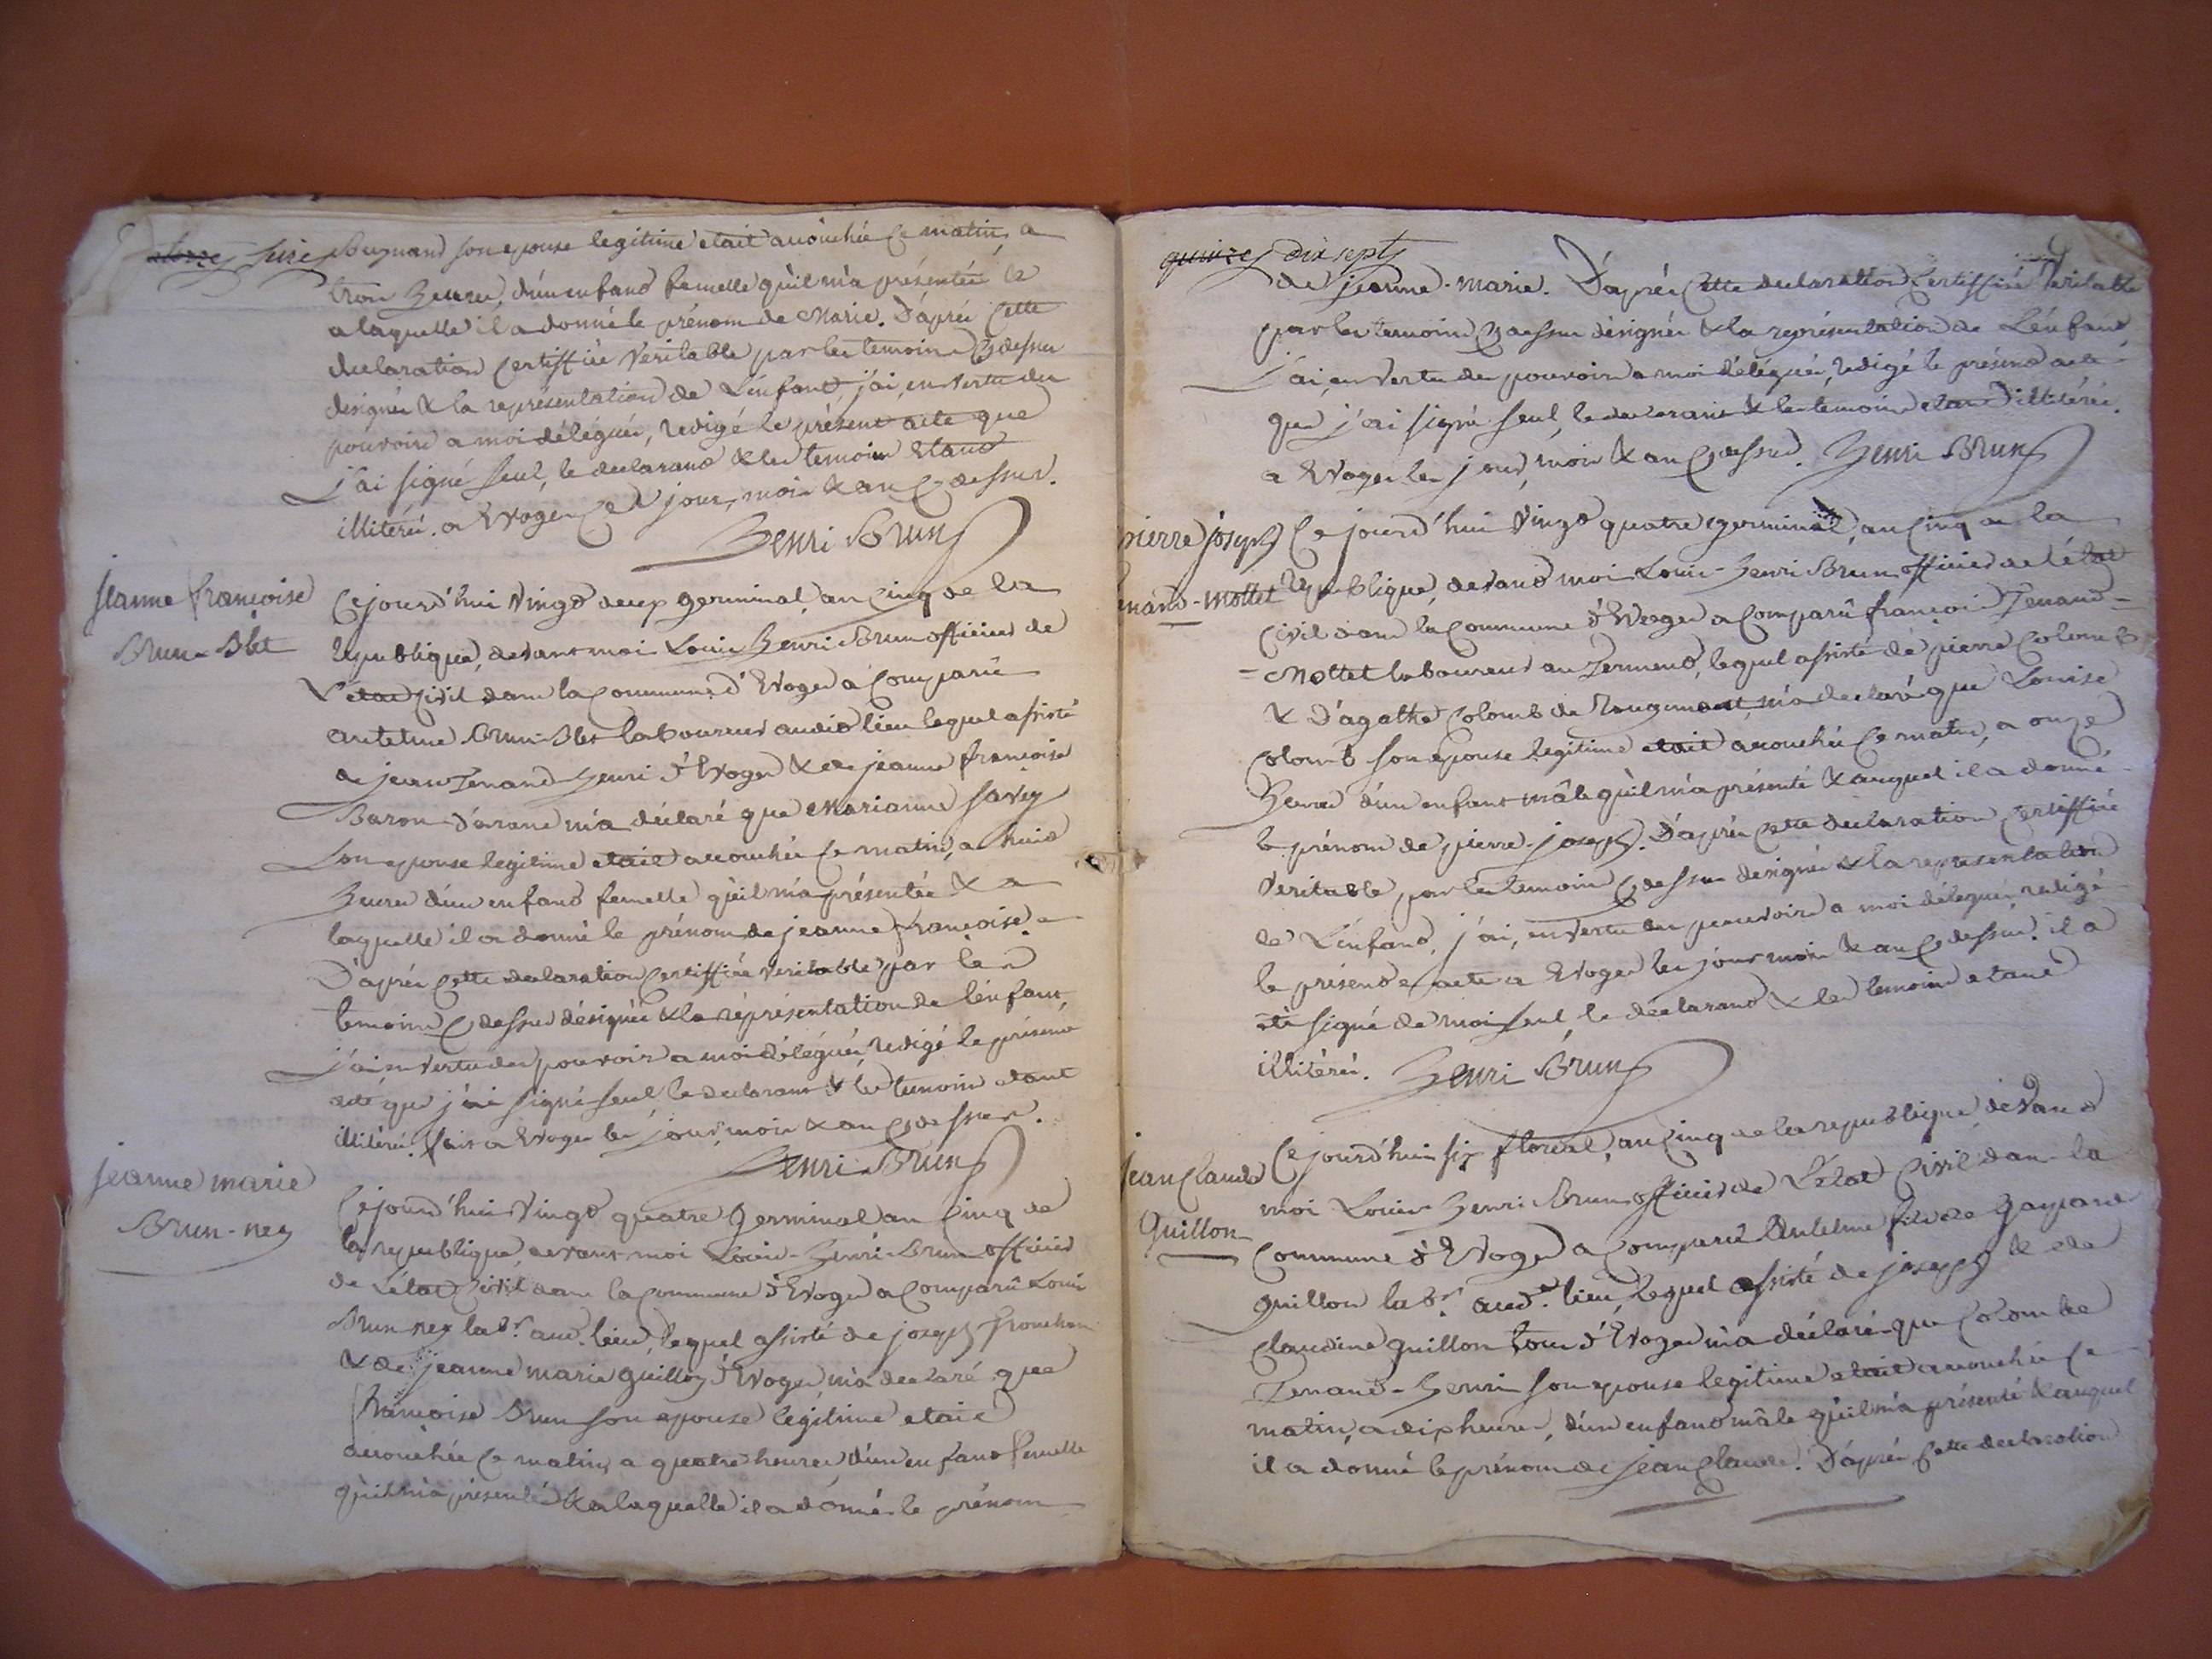 seize
Bugnand son epouse legitime etait accouchée ce matin, a
trois heures, d'un enfand femelle qu'il m'a présentée &
a laquelle il a donné le prénom de Marie. D'après cette
declaration certiffiée veritable par les temoins cy dessus
designés & la représentation de L'enfant, j'ai, en vertu des
pouvoirs a moi délégués, redigé le présent acte que
j'ai signé seul, le declarand & les temoins étand
illitérés. a Evoges les jour, mois & an cy dessus.
Henri Brun
jeanne françoise
Brun-Blet
Cejourd'hui vingt deux germinal an cinq de la
republique, devant moi Louis Henri Brun officier de
L'état civil dans la commune d'Evoges a comparû
antelme Brun-Blet laboureur audit lieu lequel assisté
de jean Zenand-henri d'Evoges & de jeanne françoise
Baron d'arane m'a déclaré que Marianne Savey
son epouse legitime etait accouchée ce matin, a huit
heures d'un enfand femelle qu'il m'a présentée & a
laquelle il a donné le prénom de jeanne françoise.
D'après cette declaration certiffiée veritable par les
temoins cy dessus désignés & la réprésentation de l'enfant,
j'ai en vertu des pouvoirs a moi délégués, redigé le présent
acte que j'ai signé seul le declarant & les temoins étant
illitérés. fait a Evoges les jour, mois & an cy dessus.
Henri Brun
jeanne marie
Brun-ney
Cejourd'hui vingt quatre Germinal an cinq de
la republique, devant moi Louis-Henri Brun officier
de L'état civil dans la commune d'Evoges a comparû Louis
Brun-ney lab.r aud. lieu, lequel assisté de joseph
& de jeanne marie guillon d'Evoges, m'a declaré que
françoise Brun son epouse legitime etait
accouchée ce matin, a quatre heures d'un enfand femelle
qu'il m'a présentée & a laquelle il a donné le prénom
quinze dix sept
de jeanne-marie. D'après cette declaration certiffiée veritable
par les temoins cy dessus désignés & la représentation de L'enfant
j'ai, en vertu des pouvoirs a moi délégués, redigé le présent acte
que j'ai signé seul, le declarant & les temoins etant illitérés.
a Evoges les jour, mois & an cy dessus. Henri Brun
pierre joseph
-Mottet
Ce jourd'hui vingt quatre germinal, an cinq de la
republique, devand moi Louis-Henri Brun officier de l'état
civil dans la commune d'Evoges a comparû françois Zenand-
-Mottet laboureur au, lequel assisté de pierre Colomb
& D'agathe Colomb de Rougemont, m'a declaré que Louise
Colomb son epouse legitime etait accouchée ce matin, a onze
heures d'un enfant mâle qu'il m'a présenté & auquel il a donné
le prénom de pierre-joseph. D'après cette declaration certiffiée
veritable, par les temoins cy dessus designés & la représentation
de L'enfand, j'ai, en vertu des pouvoirs a moi délégués, redigé
le présend acte a Evoges les jour mois & an cy dessus. il a
été signé de moi seul, le declarand & les temoins etant
illitérés. Henri Brun
jean Claude
Guillon
Ce jourd'hui six floreal, an cinq de la republique, devand
moi Louis Henri Brun officier de L'état civil dans la
commune d'Evoges a comparû Antelme fils de Gaspard
guillon lab.r aud.t lieu, lequel assisté de joseph & de
claudine guillon tous d'Evoges m'a déclaré que Colombe
Zenand-Henri son epouse legitime etait accouchée ce
matin, a dix heures, d'un enfand mâle qu'il m'a présenté & auquel
il a donné le prénom de jean Claude. D'après cette declaration